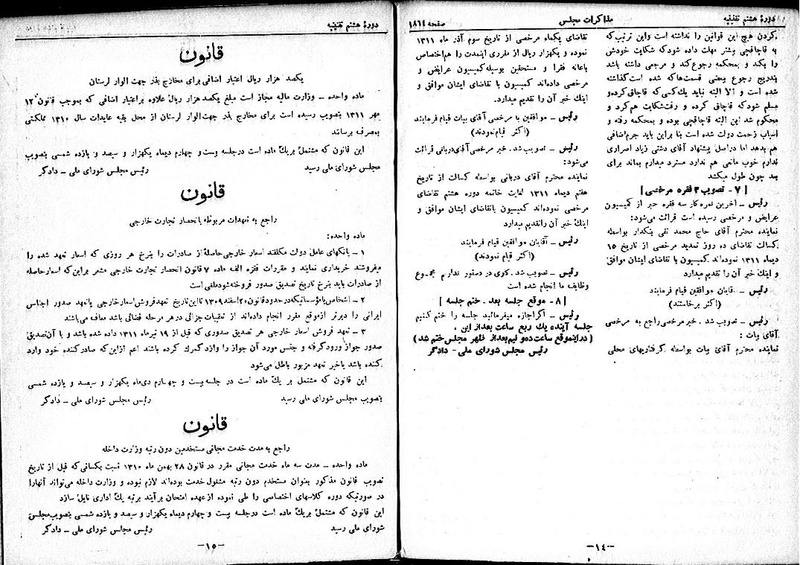 دورهٔ هشتم تقنینیه
مذاکرات مجلس
صفحه ۱۸۶۱
کردن هیچ این قوانین را نداشته است واین ترتیب‌که
به قاچاقچی بشتر مهلت داده شود که شکایت خودش
را بکند و بمحکمه رجوع کند و مرجعی داشته باشد
بتدریج رجوع بیعنی قسمت‌ها که شده است گذاشته
شده است و الا البته نباید یك کسی‌که قاچاق کرده و
مسلم شود که قاچاق کرده و رفت شکایت هم کرد و
محکوم شد این البته قاچاقچی بوده و بمحکمه رفته و
اسباب زحمت دولت شده است بنا براین باید جرم اضافی
هم بدهد اما دراصل پیشنهاد آقای دشتی زیاد اصراری
ندارم خوب مانعی هم ندارد مسترد میدارم بماند برای
بعد چون طول میکشد
[ ۷ - تصویب ۳ فقره مرخصی ]
رئیس - آخرین نمره کار سه فقره خبر از کمیسیون
عرایض و مرخصی رسیده است قرائت می‌شود:
نماینده محترم آقای حاج محمد تقی بنکدار بواسطه
کسالت تقاضای ده روز تمدید مرخصی از تاریخ ۱۵
دیماه ۱۳۱۱ نموده‌اند کمیسیون با تقاضای ایشان موافق
و اینك خبر آن را تقدیم میدارد
رئیس - آقایان موافقین قیام فرمایند
(اکثر برخاستند)
رئیس - تصویب شد . خبر مرخصی راجع به مرخصی
آقای بیات :
نماینده محترم آقای بیات بواسطه گرفتاریهای محلی
تقاضای یکماه مرخصی از تاریخ سوم آذر ماه ۱۳۱۱
نموده و یکهزار ریال از مقرری اینمدت را هم اختصاص
باعانه فقرا و مستحقین بوسیله کمیسیون عرایض و
مرخصی داده‌اند کمیسیون با تقاضای ایشان موافق و
اینك خبر آن را تقدیم میدارد.
رئیس - موافقین با مرخصی آقای بیات قیام فرمایند
(اکثر قیام نمودند)
رئیس - تصویب شد. خبر مرخصی آقای دربانی قرائت
می‌شود:
نماینده محترم آقای دربانی بواسطه کسالت از تاریخ
هفتم دیماه ۱۳۱۱ لغایت خاتمه دوره هشتم تقاضای
مرخصی نموده‌اند کمیسیون باتقاضای ایشان موافق و
اینك خبر آن را تقدیم میدارد
رئیس - آقایان موافقین قیام فرمایند
(اکثر قیام نمودند)
رئیس - تصویب شد. کاری در دستور نداریم مجموع
وظایف ما انجام شده است
[ ۸ - موقع جلسه بعد - ختم جلسه ]
رئیس - اگر اجازه میفرمائید جلسه را ختم کنیم
جلسه آینده یك ربع ساعت بعد از این .
(دراینموقع ساعت دو و نیم بعد از ظهر مجلس ختم شد)
رئیس مجلس شورای ملی - دادگر
-۱٤-
دورهٔ هشتم تقنینیه
قانون
یکصد هزار ریال اعتبار اضافی برای مخارج بذر جهت الوار لرستان
ماده واحده - وزارت مالیه مجاز است مبلغ یکصد هزار ریال علاوه براعتبار اضافی که بموجب قانون ۱۲
مهر ۱۳۱۱ بتصویب رسیده است برای مخارج بذر جهت الوار لرستان از محل بقیه عایدات سال ۱۳۱۰ مملکتی
بمصرف برساند
این قانون که مشتمل بریك ماده است درجلسه بیست و چهارم دیماه یکهزار و سیصد و یازده شمسی بتصویب
مجلس شورای ملی رسید رئیس مجلس شورای ملی - دادگر
قانون
راجع به تعهدات مربوطه بانحصار تجارت خارجی
ماده واحده:
۱ - بانکهای عامل دولت مکلفند اسعار خارجی حاصلهٔ از صادرات را بنرخ هر روزی که اسعار تعهد شده را
میفروشند خریداری نمایند و مقررات فقره الف ماده ۷ قانون انحصار تجارت خارجی مشعر براین‌که اسعار حاصله
از صادرات باید بنرخ تاریخ تصدیق صدور فروخته شود ملغی است
۲ - اشخاص یا مؤسساتیکه در حدود قانون ۲۰ اسفند ۱۳۰۹ تا این تاریخ تعهد فروش اسعار خارجی یا تعهد صدور اجناس
ایرانی را دیرتر از موقع مقرر انجام داده‌اند از تعقیبات جزائی در هر مرحله قضائی باشد معاف می‌باشند
۳ - تعهد فروش اسعار خارجی هر تصدیق صدوری که قبل از ۱۹ تیر ماه ۱۳۱۱ داده شده باشد و با آن تصدیق
صدور جواز ورود گرفته و جنس مورد آن جواز را وارد گمرك کرده باشند اعم از این که صادر کننده خود وارد
کننده باشد یا خیر تعهد مزبور باطل می‌شود
این قانون که مشتمل بریك ماده است در جلسه بیست و چهارم دی‌ماه یکهزار و سیصد و یازده شمسی
بتصویب مجلس شورای ملی رسید رئیس مجلس شورای ملی - دادگر
قانون
راجع به مدت خدمت مجانی مستخدمین دون رتبه وزارت داخله
ماده واحده - مدت سه ماه خدمت مجانی مقرر در قانون ۲۸ بهمن ماه ۱۳۱۰ نسبت بکسانی که قبل از تاریخ
تصویب قانون مذکور بعنوان مستخدم دون رتبه مشغول خدمت بوده‌اند لازم نبوده و وزارت داخله می‌تواند آنهارا
در صورتیکه دوره کلاسهای اختصاصی را طی نموده از عهده امتحان برآیند برتبه یك اداری نایل سازد
این قانون که مشتمل بریك ماده است درجلسه بیست و چهارم دیماه یکهزار و سیصد و یازده شمسی بتصویب مجلس
شورای ملی رسید رئیس مجلس شورای ملی - دادگر
-۱۵-